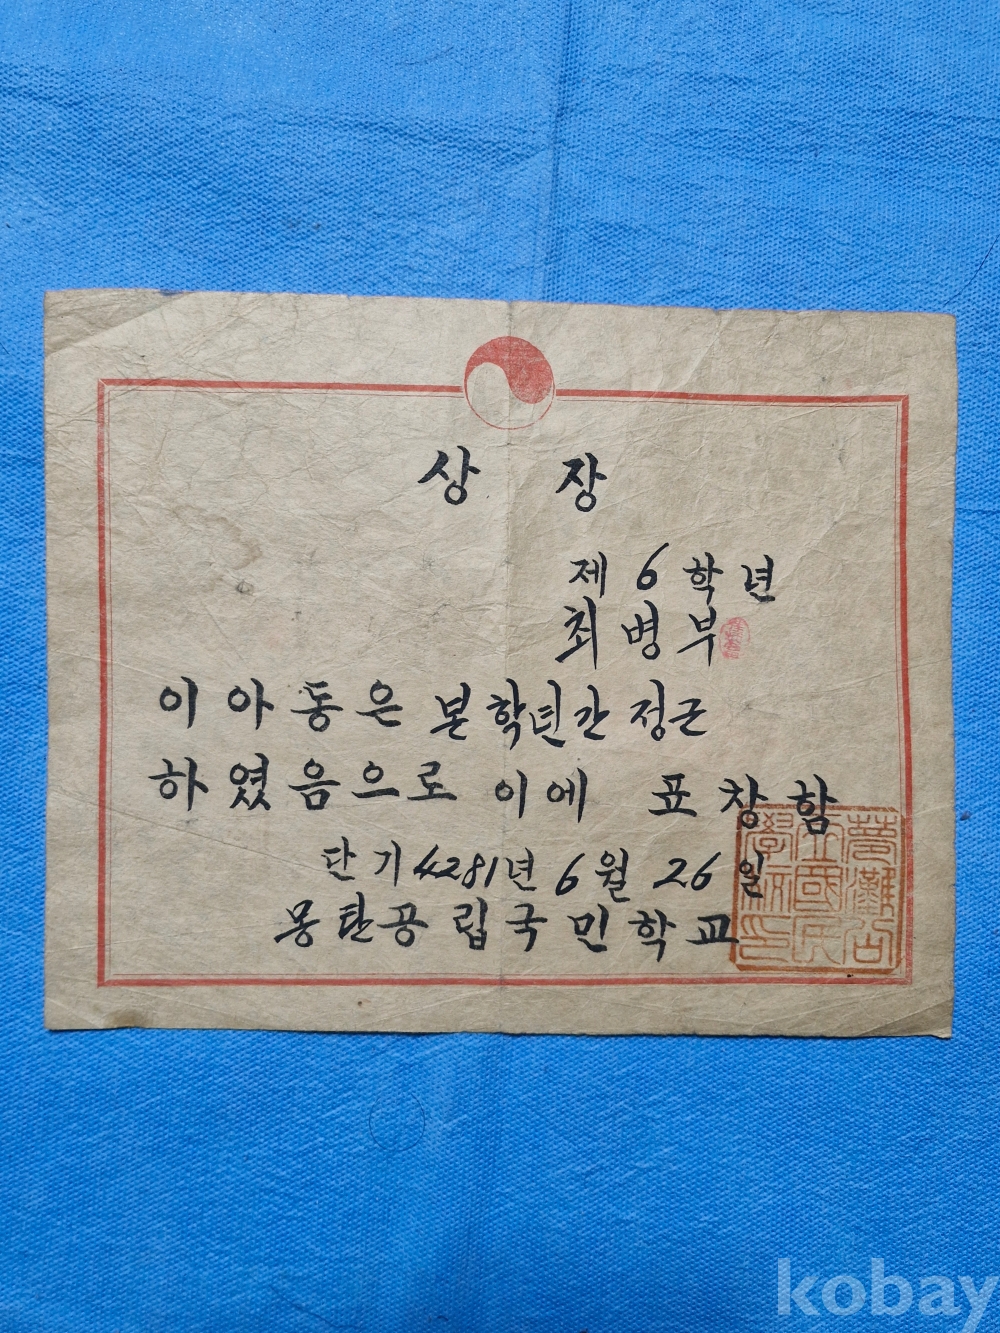 상 장
제 6 학 년
최 병 부
이 아 동 은 본 학년간 정근
하 였 음 으 로 이 에 표 창 함
단 기 4281년 6 월 26 일
몽 탄 공 립 국 민 학 교
kobay